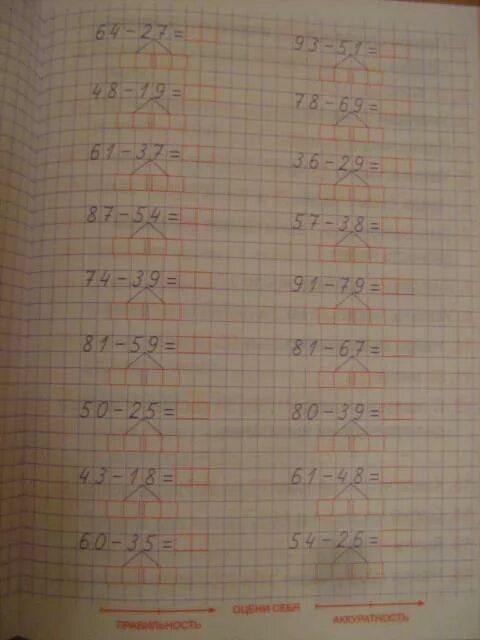 64-27=
48-19=
61-37=
87-54=
74-39=
81-59=
50-25=
43-18=
60-35=
93-51=
78-69=
36-29=
57-38=
91-79=
81-67=
80-39=
61-48=
54-26=
ПРАВИЛЬНОСТЬ ОЦЕНИ СЕБЯ АККУРАТНОСТЬ